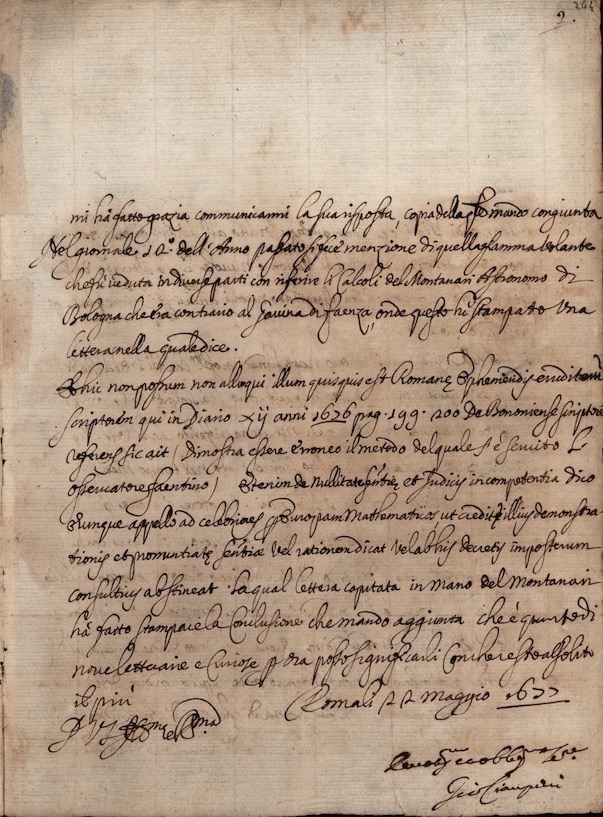 264
9.
mi hà fatto grazia communicarmi la sua risposta, copia della qle mando congiunta
Nel giornale 12.° dell'Anno passato si fece menzione di quella fiamma volante
che fù veduta in diverse parti con riferire li Calcoli del Montanari Astronomo di
Bologna che era contrario al Gavina di faenza, onde questo hà stampato una
lettera nella quale dice.
Et hic non possum non alloqui illum quisquis est Romanę Ephemeridis eruditum
scriptorem qui in Diario xij anni 1676 pag. 199. 200 De Bononiense scriptore
referens sic ait (Dimostra essere erroneo il metodo del quale si è servito L
osservatore faentino) Etenim de Nullitate sentię, et Judicis incompetentia dico
Eumque appello ad celebriores p Europam Mathematicos ut creditę illius demonstra-
tionis et pronuntiatę sentiae vel rationem dicat vel ab his decretis imposterum
consultius abstineat. La qual lettera capitata in Mano del Montanari
hà fatto stampare la Conclusione che mando aggiunta che è quanto di
nove letterarie e curiose p ora posso significarli Con che resto al solito
il più
Roma li 22 Maggio 1677
D V S Illma e Rma
Devotmo et obbligmo Sre
Gio Ciampini